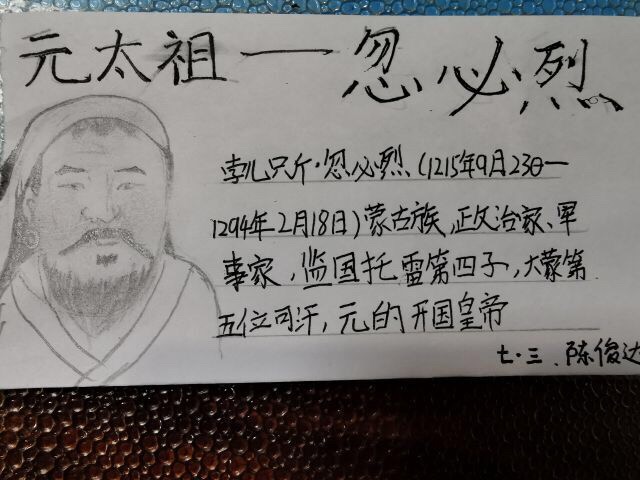 元太祖一忽必烈
孛儿只斤·忽必烈（1215年9月23日一
1294年2月18日）蒙古族,政治家、军
事家，监国托雷第四子，大蒙第
五位可汗，元的开国皇帝
七·三、陈俊达